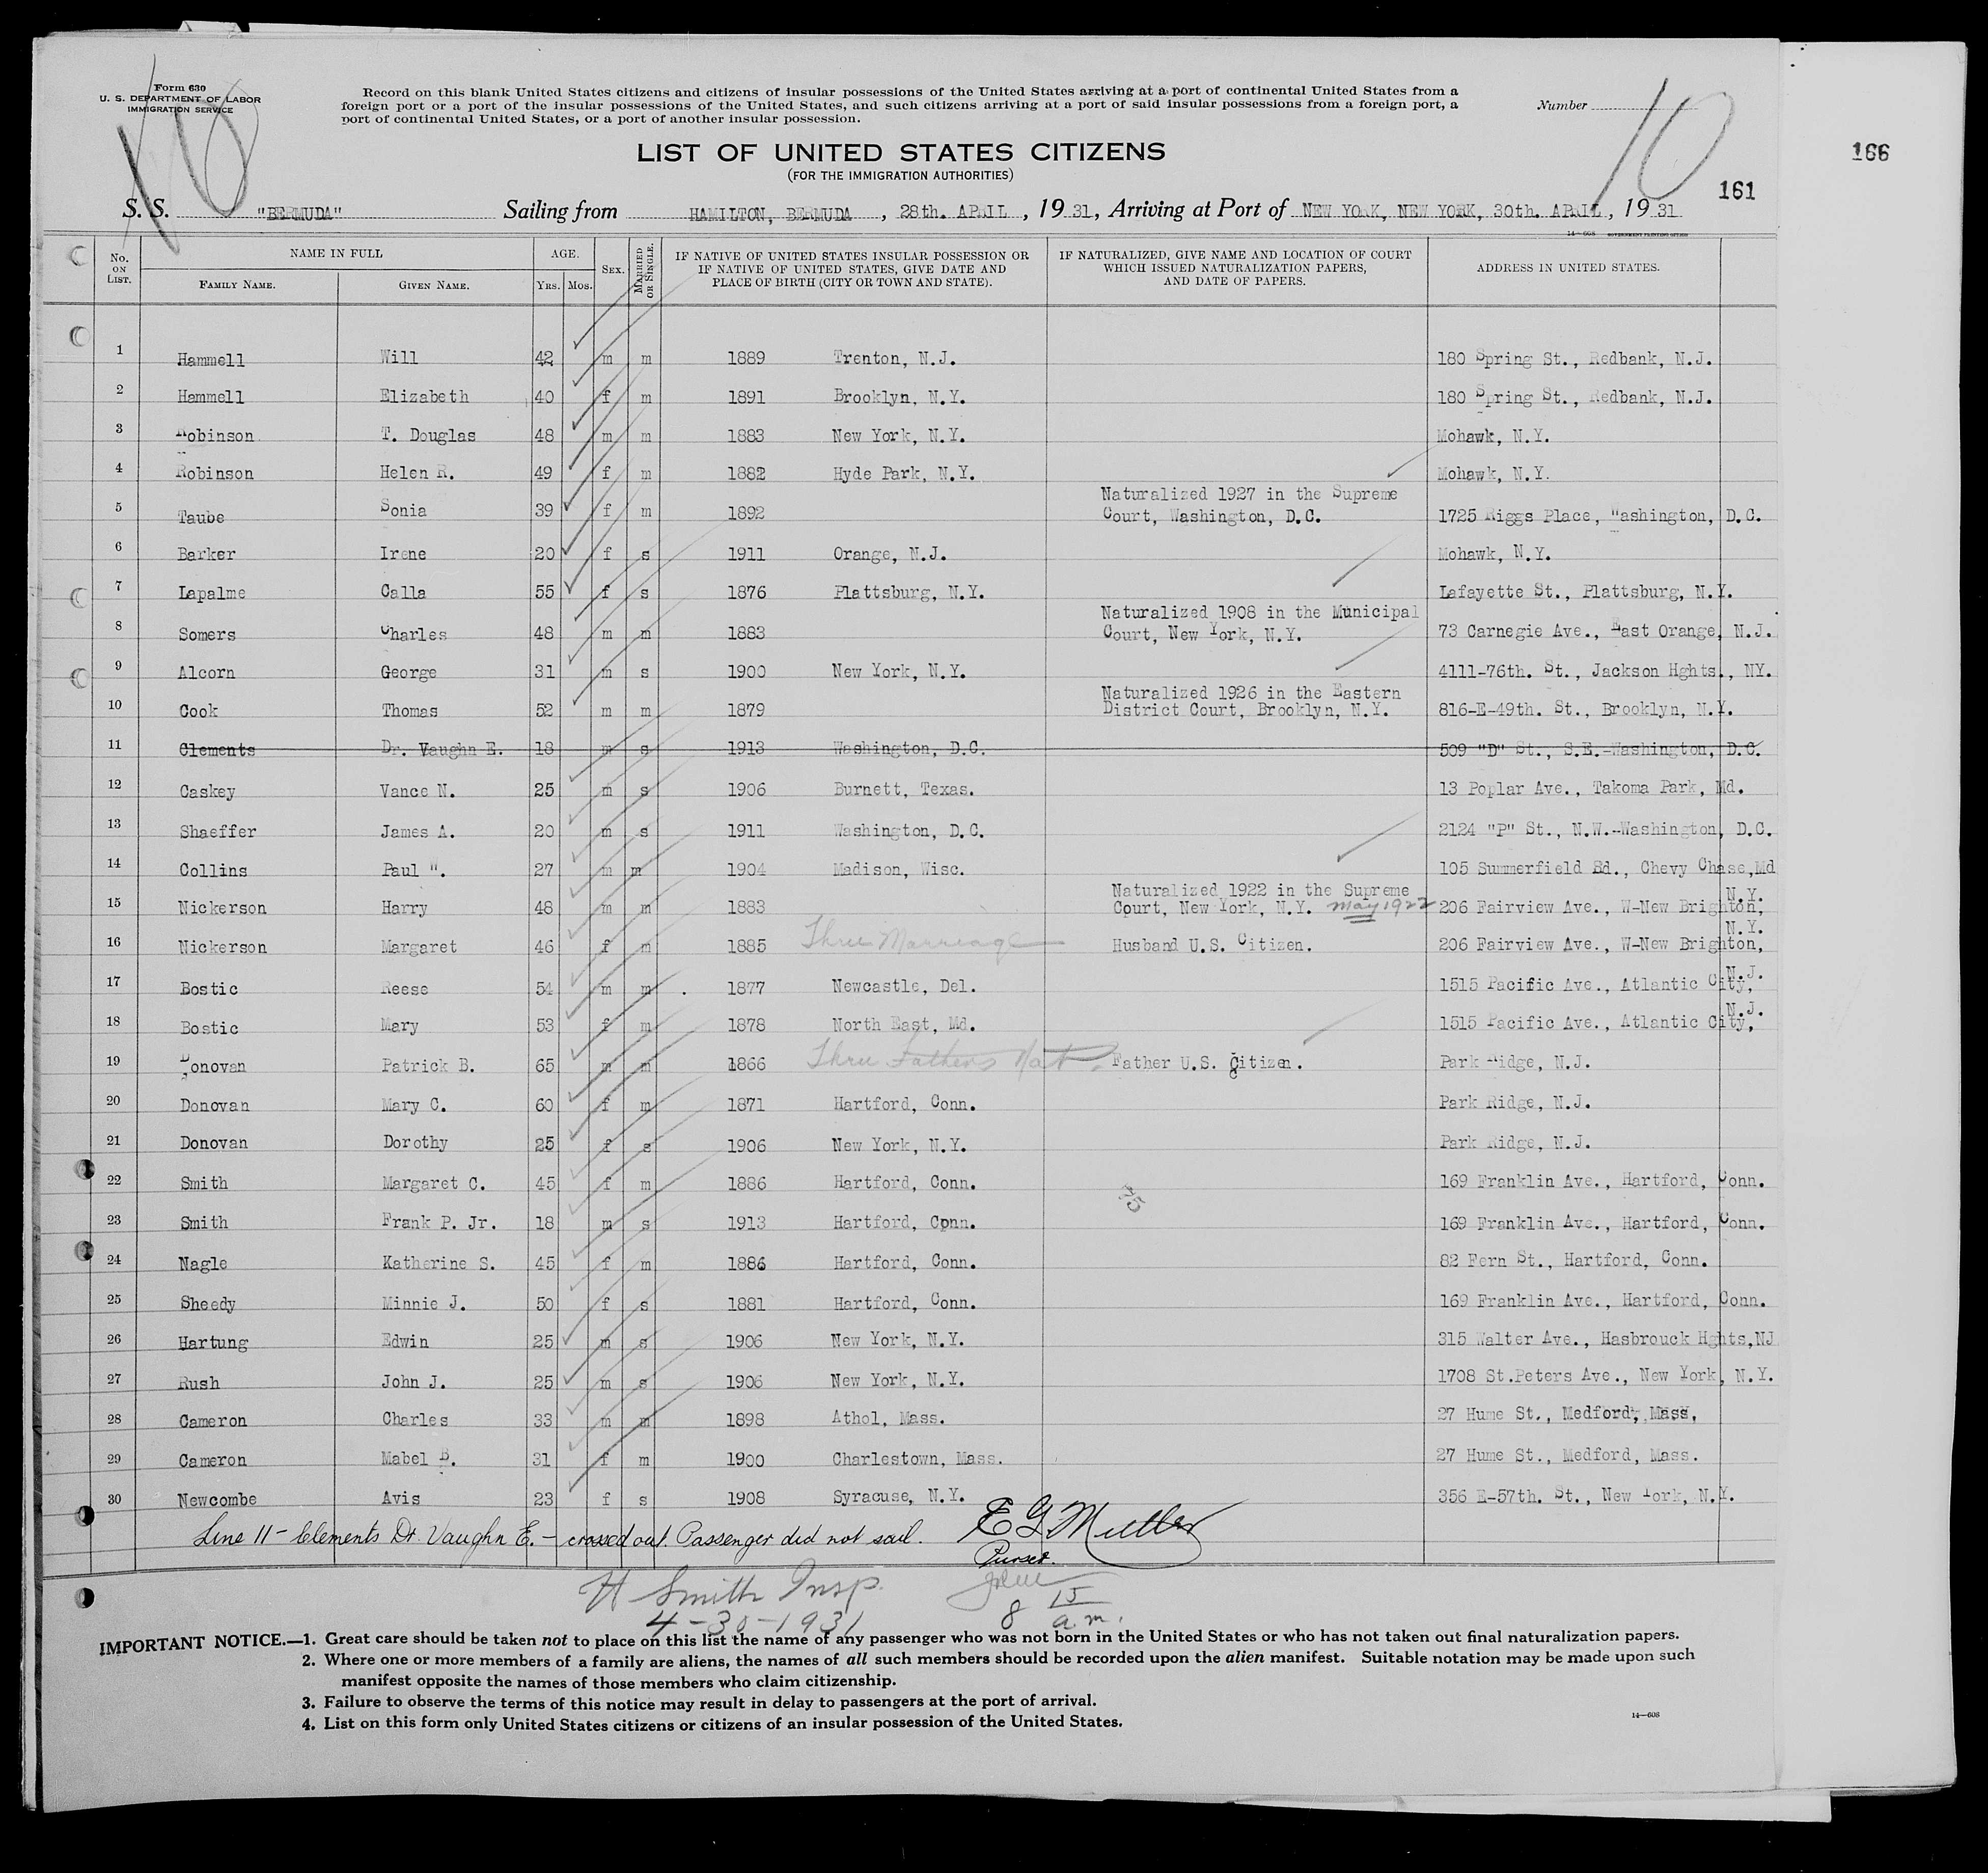 Form 630
U. S. DEPARTMENT OF LABOR
IMMIGRATION SERVICE
10
Record on this blank United States citizens and citizens of insular possessions of the United States arriving at a port of continental United States from a
foreign port or a port of the insular possessions of the United States, and such citizens arriving at a port of said insular possessions from a foreign port, a
port of continental United States, or a port of another insular possession.
Number
10
LIST OF UNITED STATES CITIZENS
(FOR THE IMMIGRATION AUTHORITIES)
166
161
S. S. "BERMUDA" Sailing from HAMILTON, BERMUDA, 28th. APRIL, 1931, Arriving at Port of NEW YORK, NEW YORK, 30th. APRIL, 1931
14—608 GOVERNMENT PRINTING OFFICE
No. ON LIST. NAME IN FULL AGE. SEX. MARRIED OR SINGLE. IF NATIVE OF UNITED STATES INSULAR POSSESSION OR IF NATIVE OF UNITED STATES, GIVE DATE AND PLACE OF BIRTH (CITY OR TOWN AND STATE). IF NATURALIZED, GIVE NAME AND LOCATION OF COURT WHICH ISSUED NATURALIZATION PAPERS, AND DATE OF PAPERS. ADDRESS IN UNITED STATES.
FAMILY NAME. GIVEN NAME. YRS. MOS.
1 Hammell Will 42 m m 1889 Trenton, N.J. 180 Spring St., Redbank, N.J.
2 Hammell Elizabeth 40 f m 1891 Brooklyn, N.Y. 180 Spring St., Redbank, N.J.
3 Robinson T. Douglas 48 m m 1883 New York, N.Y. Mohawk, N.Y.
4 Robinson Helen R. 49 f m 1882 Hyde Park, N.Y. Mohawk, N.Y.
Naturalized 1927 in the Supreme
5 Taube Sonia 39 f m 1892 Court, Washington, D.C. 1725 Riggs Place, Washington, D.C.
6 Barker Irene 20 f s 1911 Orange, N.J. Mohawk, N.Y.
7 Lapalme Calla 55 f s 1876 Plattsburg, N.Y. Lafayette St., Plattsburg, N.Y.
Naturalized 1908 in the Municipal
8 Somers Charles 48 m m 1883 Court, New York, N.Y. 73 Carnegie Ave., East Orange, N.J.
9 Alcorn George 31 m s 1900 New York, N.Y. 4111-76th. St., Jackson Hghts., NY.
Naturalized 1926 in the Eastern
10 Cook Thomas 52 m m 1879 District Court, Brooklyn, N.Y. 816-E-49th. St., Brooklyn, N.Y.
11 Clements Dr. Vaughn E. 18 m s 1913 Washington, D.C. 509 "D" St., S.E.-Washington, D.C.
12 Caskey Vance N. 25 m s 1906 Burnett, Texas. 13 Poplar Ave., Takoma Park, Md.
13 Shaeffer James A. 20 m s 1911 Washington, D.C. 2124 "P" St., N.W.-Washington, D.C.
14 Collins Paul W. 27 m m 1904 Madison, Wisc. 105 Summerfield Rd., Chevy Chase,Md
Naturalized 1922 in the Supreme N.Y.
15 Nickerson Harry 48 m m 1883 Court, New York, N.Y. May 1922 206 Fairview Ave., W-New Brighton,
N.Y.
16 Nickerson Margaret 46 f m 1885 Thru Marriage Husband U.S. Citizen. 206 Fairview Ave., W-New Brighton,
N.J.
17 Bostic Reese 54 m m 1877 Newcastle, Del. 1515 Pacific Ave., Atlantic City,
N.J.
18 Bostic Mary 53 f m 1878 North East, Md. 1515 Pacific Ave., Atlantic City,
19 Donovan Patrick B. 65 m m 1866 Thru Fathers Nat. Father U.S. Citizen. Park Ridge, N.J.
20 Donovan Mary C. 60 f m 1871 Hartford, Conn. Park Ridge, N.J.
21 Donovan Dorothy 25 f s 1906 New York, N.Y. Park Ridge, N.J.
22 Smith Margaret C. 45 f m 1886 Hartford, Conn. 169 Franklin Ave., Hartford, Conn.
75
23 Smith Frank P. Jr. 18 m s 1913 Hartford, Conn. 169 Franklin Ave., Hartford, Conn.
24 Nagle Katherine S. 45 f m 1886 Hartford, Conn. 82 Fern St., Hartford, Conn.
25 Sheedy Minnie J. 50 f s 1881 Hartford, Conn. 169 Franklin Ave., Hartford, Conn.
26 Hartung Edwin 25 m s 1906 New York, N.Y. 315 Walter Ave., Hasbrouck Hghts,NJ
27 Rush John J. 25 m s 1906 New York, N.Y. 1708 St.Peters Ave., New York, N.Y.
28 Cameron Charles 33 m m 1898 Athol, Mass. 27 Hume St., Medford, Mass,
29 Cameron Mabel B. 31 f m 1900 Charlestown, Mass. 27 Hume St., Medford, Mass.
30 Newcombe Avis 23 f s 1908 Syracuse, N.Y. 356 E-57th. St., New York, N.Y.
Line 11 - Clements Dr. Vaughn E. - crossed out. Passenger did not sail. E G Muller
Purser.
H Smith Insp.
4-30-1931 8 15 a.m.
IMPORTANT NOTICE.—1. Great care should be taken not to place on this list the name of any passenger who was not born in the United States or who has not taken out final naturalization papers.
2. Where one or more members of a family are aliens, the names of all such members should be recorded upon the alien manifest. Suitable notation may be made upon such
manifest opposite the names of those members who claim citizenship.
3. Failure to observe the terms of this notice may result in delay to passengers at the port of arrival.
4. List on this form only United States citizens or citizens of an insular possession of the United States.
14—608